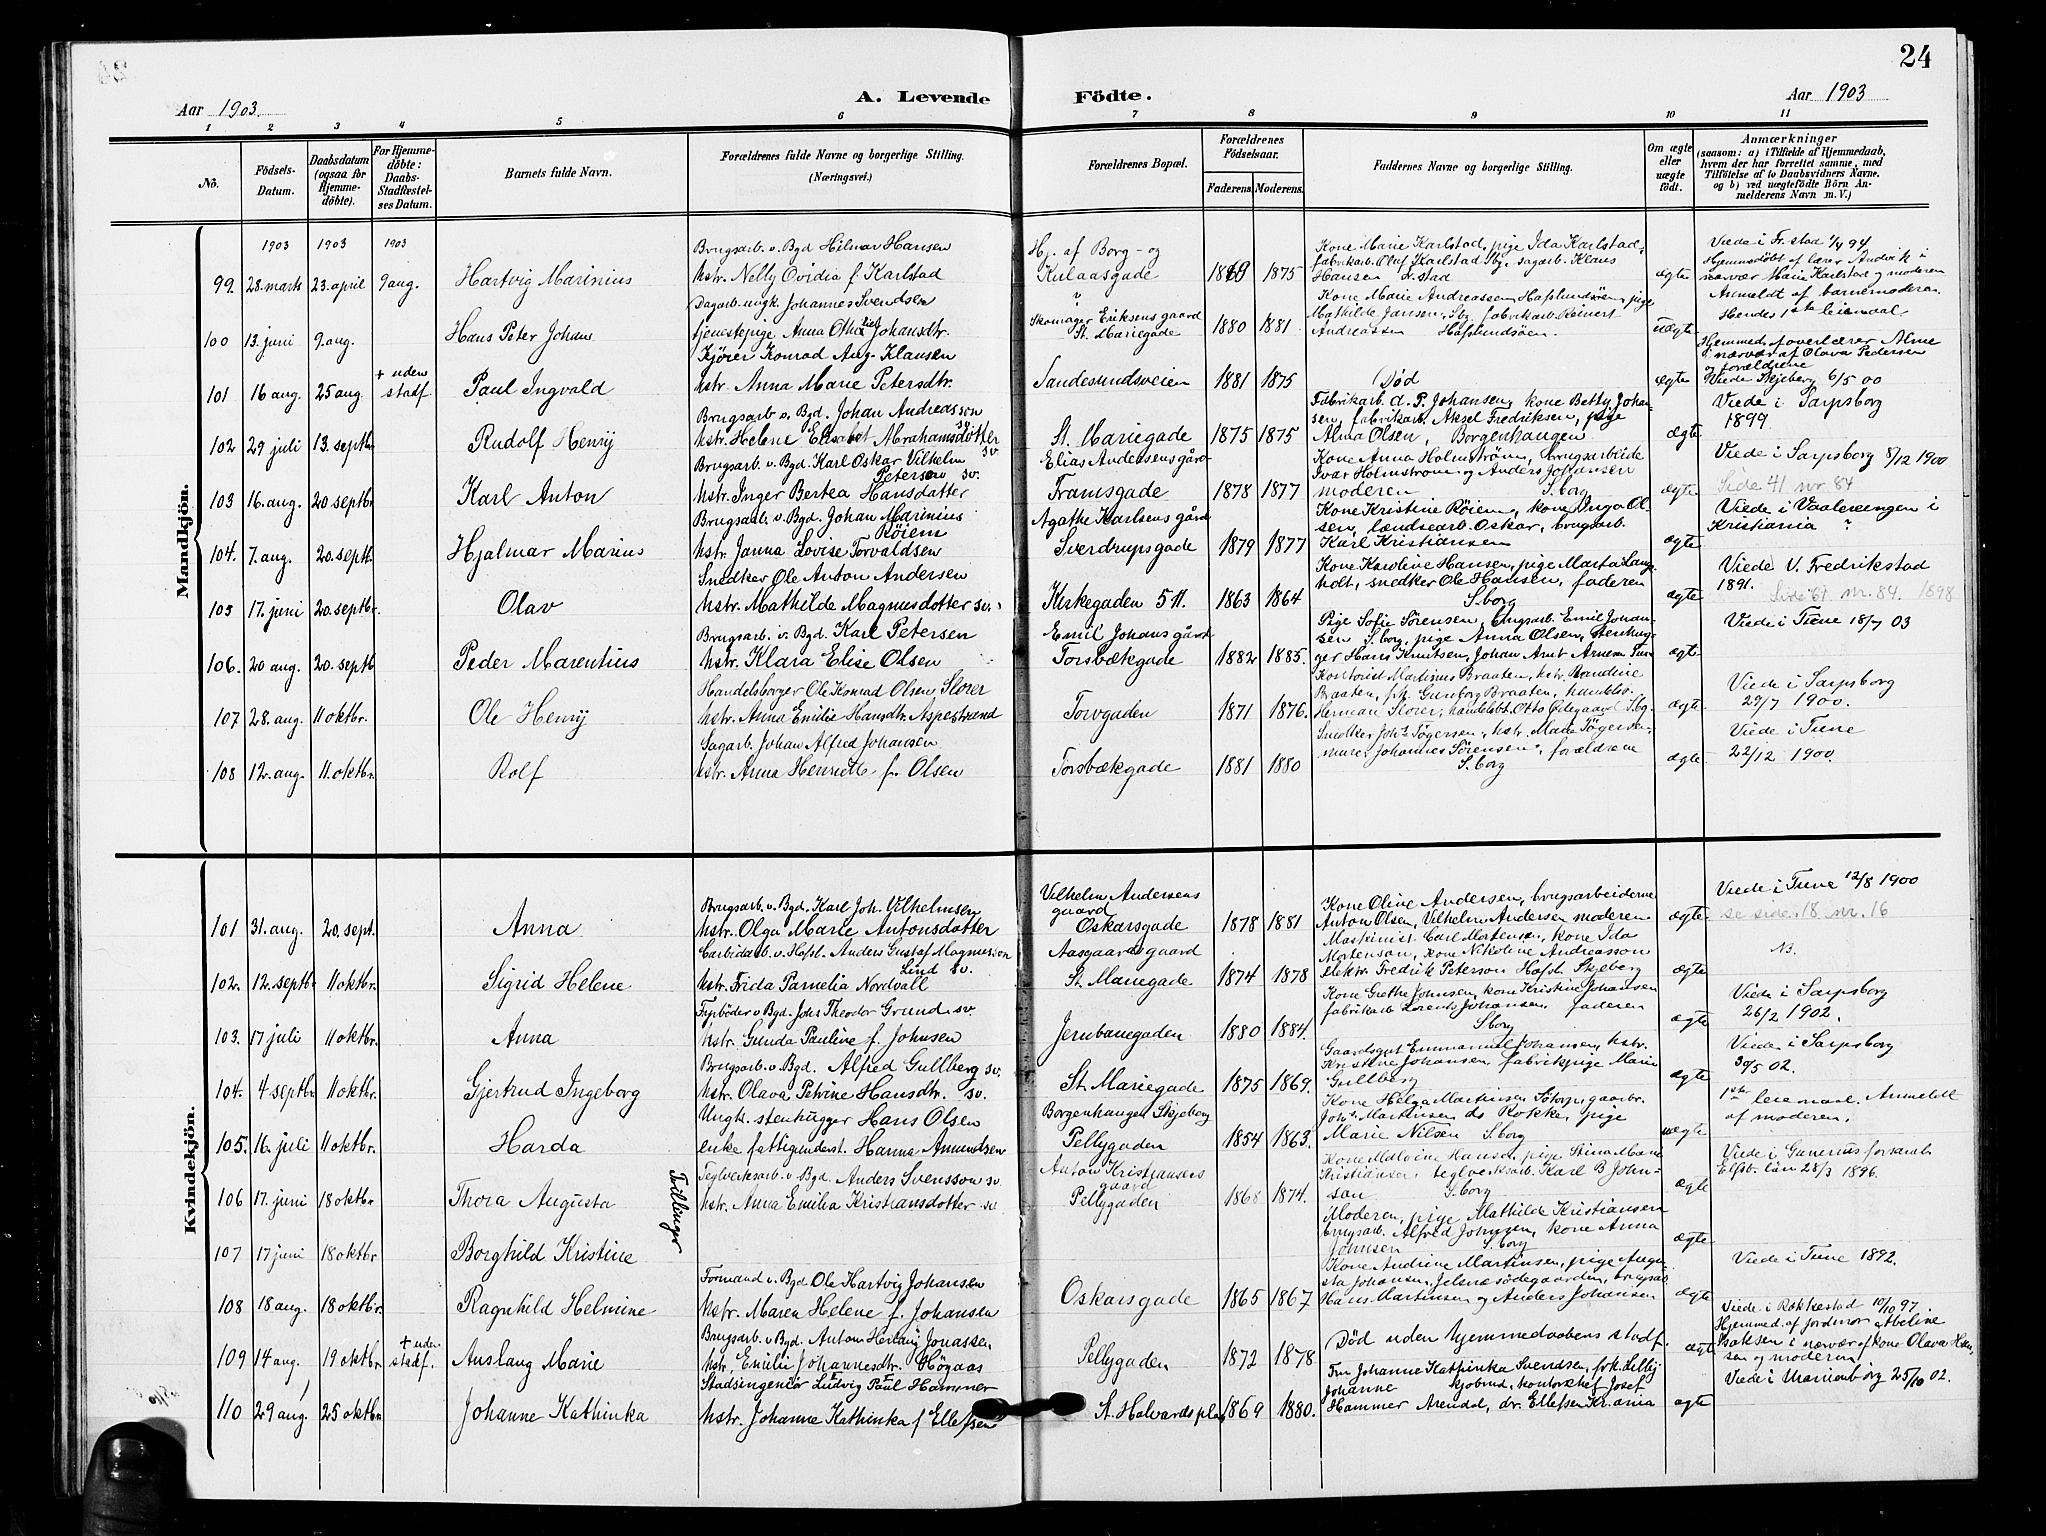 24
Aar 1903.
A. Levende Födte.
Aar 1903
1 2 3 4 5 6 7 8 9 10 11
No.
Födsels-Datum.
Daabsdatum (ogsaa for Hjemmedöbte).
For Hjemmedöbte: Daabs-Stadfæstelses Datum.
Barnets fulde Navn.
Forældrenes fulde Navne og borgerlige Stilling.
(Næringsvei.)
Forældrenes Bopæl.
Forældrenes Födselsaar.
Faderens. Moderens.
Faddernes Navne og borgerlige Stilling.
Om ægte eller uægte födt.
Anmærkninger
(saasom: a) i Tilfælde af Hjemmedaab, hvem der har forrettet samme, med Tilföielse af to Daabsvidners Navne, og b) ved uægtefödte Börn Anmelderens Navn m. V.)
Mandkjön.
1903 1903 1903
99 28. marts 23. april 9 aug. Hartvig Marinius
Brugsarb. v. Bgd Hilmar Hansen
hstr. Nelly Ovidia f. Karlstad
Hj. af Borg- og
Kulaasgade
1869 1875
Kone Marie Karlstad, pige Ida Karlstad,
fabrikarb. Oluf Karlstad Sbg, sagarb. Klaus
Hansen Fr.stad
ægte
Viede i Fr.stad 1/4 94
100 13. juni 9. aug. Hans Peter Johan
Dagarb. ungk. Johannes Svendsen
tjenestepige Anna Othalie Johansdtr.
Skomager Eriksens gaard
St. Mariegade
1880 1881
Kone Marie Andreassen Hafslundsöen, pige
Mathilde Jansen, Sbg, fabrikarb. Reinert
Andreassen Hafslundsöen.
uægte
Anmeldt af barnemoderen.
Hendes 1ste leiermaal.
101 16 aug. 25 aug. + uden stadf. Paul Ingvald
Kjörer Konrad Aug. Klausen
hstr. Anna Marie Petersdtr.
Sandesundsveien
1881 1875
Död
ægte
Hjemmed. af overlærer Alme
i nærvær af Olava Pedersen
og forældrene
Viede Skjeberg 6/5 00
102 29 juli 13. septbr. Rudolf Henrÿ
Brugsarb v. Bgd. Johan Andreassen
hstr. Helene Elisabet Abrahamsdotter sv
St. Mariegade
1875 1875
Fabrikarb. d. P. Johansen, kone Betty Johansen,
fabrikarb. Aksel Fredriksen, pige
Alma Olsen, Borgenhaugen
ægte
Viede i Sarpsborg
1899.
103 16. aug. 20 septbr. Karl Anton
Brugsarb. v. Bgd. Karl Oskar Vilhelm
Petersen sv.
hstr. Inger Bertea Hansdatter
Elias Andersens gård
Framsgade
1878 1877
Kone Anna Holmström, brugsarbeide
Ivar Holmström og Anders Johansen
moderen S.borg
ægte
Viede i Sarpsborg 8/12 1900
Side 41 nr. 84
104. 7. aug. 20. septbr. Hjalmar Marius
Brugsarb. v. Bgd. Johan Marinius
Röiem
hstr. Janna Lovise Torvaldsen
Agathe Karlsens gård
Sverdrupsgade
1879 1877
Kone Kristine Röiem, kone Inga Olsen,
landsearb. Oskar, brugsarb.
Karl Kristiansen
ægte
Viede i Vaalerengen i
Kristiania
105 17. juni 20. septbr. Olav
Snedker Ole Anton Andersen
hstr. Mathilde Magnusdotter sv.
Kirkegaden 511.
1863 1864
Kone Karoline Hansen, pige Marta Langholt,
snedker Ole Hansen, faderen
S.borg
ægte
Viede V. Fredrikstad
1891.
Side 61 nr. 84. 1898
106. 20 aug. 20. septb Peder Marentius
Brugsarb. v. Bgd. Karl Petersen
hstr. Klara Elise Olsen
Emil Johans gård
Torsbækgade
1882 1885.
Pige Sofie Sörensen, brugsarb. Emil Johansen
S.borg, pige Anna Olsen, stenhugger
Hans Knutsen, Johan Arnt Arnesen Tune
ægte
Viede i Tune 18/7 03
107 28. aug. 11 oktbr. Ole Henrÿ
Handelsborger Ole Konrad Olsen Storer
hstr. Anna Emilie Hansdtr. Aspestrand
Torvgaden
1871 1876.
Kontorist Martinus Braaten, hstr. Randine
Braaten, frk. Gunborg Braaten, handelsb.
Herman Storer, handelsbt. Otto Ödegaard S.bg.
ægte
Viede i Sarpsborg
29/7 1900.
108 12. aug. 11. oktbr. Rolf
Sagarb. Johan Alfred Johansen
hstr. Anna Henriette f. Olsen
Torsbækgade
1881 1880
Smelker Johs Tögersen, hstr. Marie Tögersen,
murer Johannes Sörensen, forældrene
S.borg
ægte
Viede i Tune
22/12 1900.
Kvindekjön.
101 31. aug. 20. sept. Anna
Brugsarb. v. Bgd. Karl Joh. Vilhelmsen
hstr. Olga Marie Antonsdatter
Vilhelm Andersens
gaard
Oskarsgade
1878 1881
Kone Oline Andersen, brugsarbeiderne
Anton Olsen, Vilhelm Andersen moderen
ægte
Viede i Tune 12/8 1900
se side 18 nr. 16
102. 12. septbr 11 oktbr. Sigrid Helene
Carbidarb. v. Hafsl. Anders Gustaf Magnusson
Lind sv.
hstr. Frida Pamelia Nordvall
Aasgaards gaard
St. Mariegade
1874 1878
Maskinist Carl Mortensen, kone Ida
Mortensen, kone Nikoline Andreasson
elektr. Fredrik Peterson Hafsl. Skjeberg
ægte
NB.
103. 17 juli 11 oktbr. Anna
Fyrböder v. Bgd. Johs Theodor Grund sv.
hstr. Gunda Pauline f. Johnsen
Jernbanegaden
1880 1884.
Kone Grethe Johnsen, kone Kristine Johansen
fabrikarb. Lorents Johansen, faderen
S.borg
ægte
Viede i Sarpsborg
26/2 1902.
104. 4 septbr. 11 oktbr. Gjertrud Ingeborg
Brugsarb. v. Bgd. Alfred Gullberg sv.
hstr. Olava Petrine Hansdtr. sv.
St. Mariegade
1875 1869.
Gaardsgut Emmanuel Johansen, hstr.
Kristine Johansen, fabrikpige Marie
Gullberg
ægte
Viede i Sarpsborg
30/5 02.
105. 16. juli 11 oktbr. Harda
Ungk. stenhugger Hans Olsen
enke fattigunderst. Hanna Amundsen
Borgenhaugen Skjeberg
Pellygaden
1854 1863.
Kone Helga Martinsen Sotorp, gaarbr.
Johs. Martinsen ds Rokke, pige
Marie Nilsen S.borg
uægte
1ste leiermaal. Anmeldt
af moderen.
Tvillinger
106 17. juni 18 oktbr. Thora Augusta
Teglverksarb. v. Bgd. Anders Svensson sv.
hstr. Anna Emilia Kristiansdotter sv
Anton Kristiansens
gaard
Pellygaden
1868 1874.
Kone Malvine Hansen, pige Stina Marie
Kristiansen, teglverksarb. Karl B. Johnson
S.borg
ægte
Viede i Gunersus forsaml.
Elfsb. län 28/3 1896.
107 17 juni 18 oktbr. Borghild Kristine
Moderen, pige Mathilde Kristiansen
brugsarb. Alfred Johnsen, kone Anna
Johnsen S.borg
ægte
108 18 aug. 18 oktbr. Ragnhild Helmine
Formand v. Bgd Ole Hartvig Johansen
hstr. Maren Helene f. Johansen
Oskarsgade
1865 1867
Kone Andrine Martinsen, pige Augusta
Johansen, Jelnesödegaarden, brugsarb.
Hans Martinsen og Anders Johansen
ægte
Viede i Tune 1892.
109 14 aug. 19 oktbr + uden stadf. Auslaug Marie
Brugsarb. v. Bgd. Anton Hertvig Jonassen
hstr. Emilie Johannesdtr. Högaas
Pellygaden
1872 1878
Död uden hjemmedaabens stadf.
ægte
Viede i Rakkestad 10/10 97
Hjemmed. af jordmor Abeline
Isaksen i nærvær af kone Olava Hansen
og moderen
110 29 aug. 25 oktbr Johanne Kathinka
Stadsingeniör Ludvig Paul Hammer
hstr. Johanne Kathinka f Ellefsen
St. Halvards plas
1869 1880.
Fru Johanne Kathinka Svendsen, frk. Lilly
Johanne Kjobrud, kontorchef Josef
Hammer Arendal, dr. Ellefsen Kr.ania
ægte
Viede i Uranienborg 25/10 02.